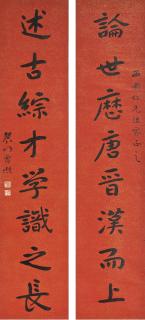 論世歷唐晉漢而上
述古綜才学識之長